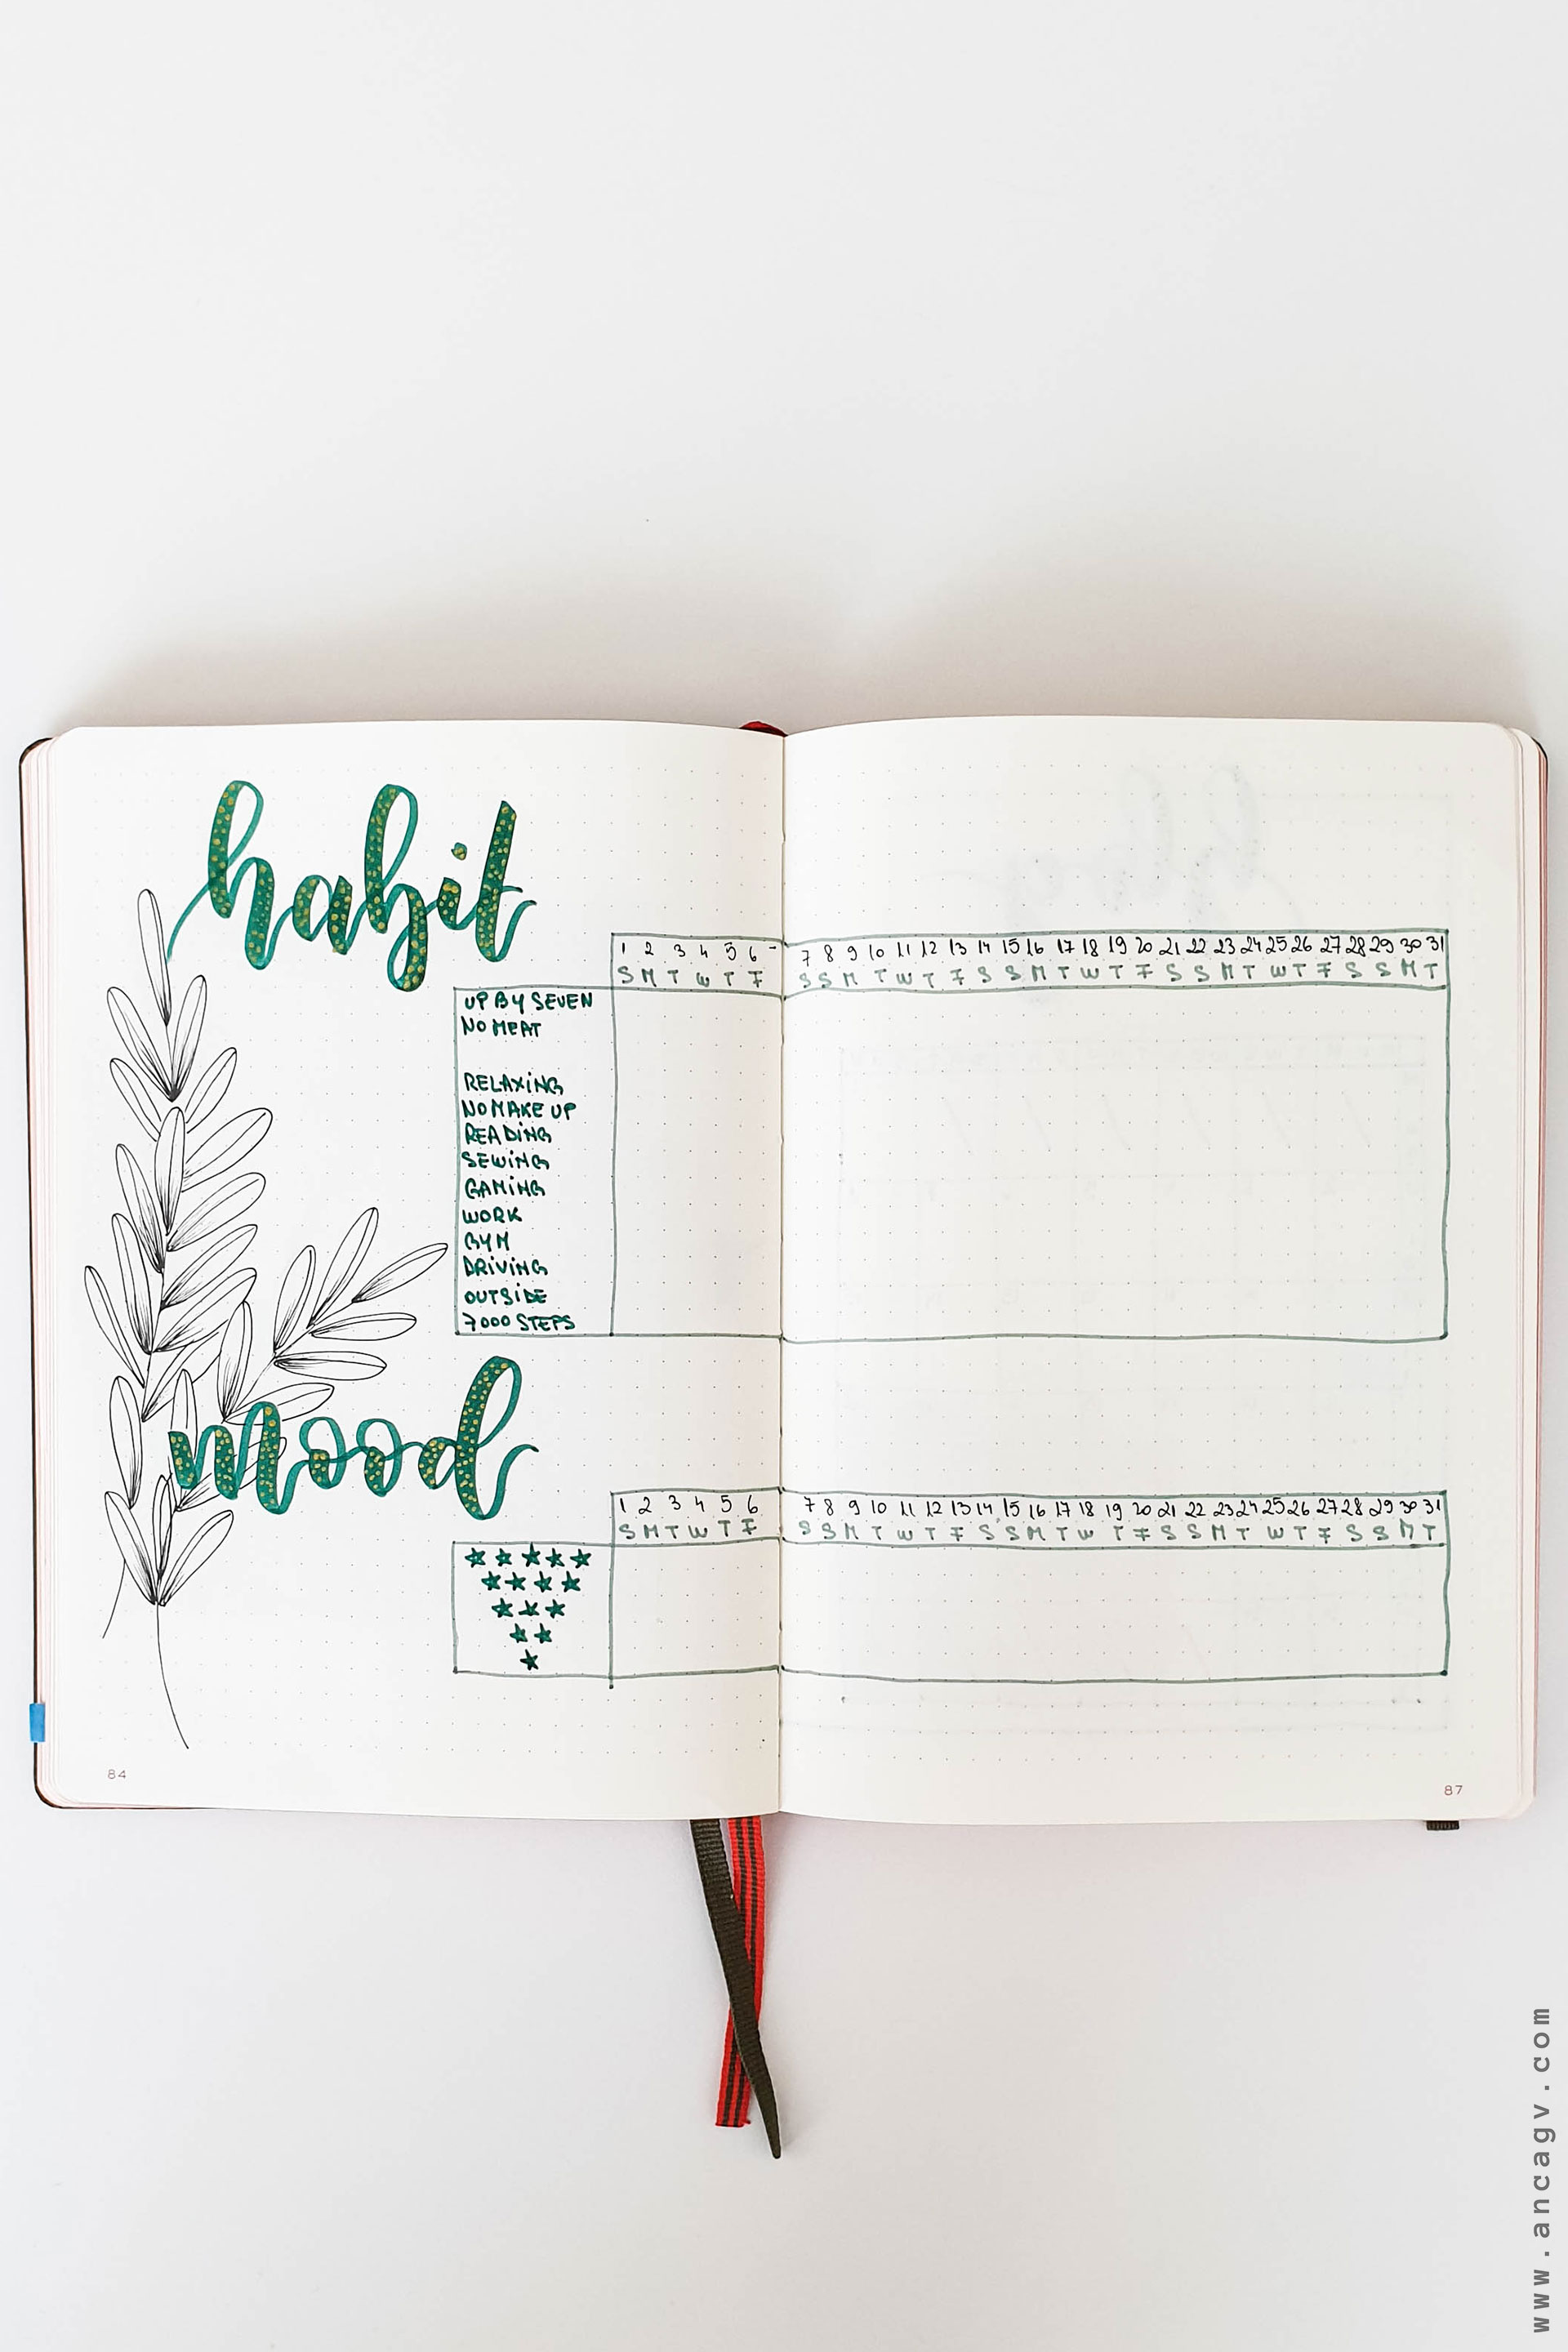 habit
1 2 3 4 5 6 - 7 8 9 10 11 12 13 14 15 16 17 18 19 20 21 22 23 24 25 26 27 28 29 30 31
S M T W T F S S M T W T F S S M T W T F S S M T W T F S S M T
UP BY SEVEN
NO MEAT
RELAXING
NO MAKE UP
READING
SEWING
GAMING
WORK
GYM
DRIVING
OUTSIDE
7000 STEPS
mood
1 2 3 4 5 6 7 8 9 10 11 12 13 14 15 16 17 18 19 20 21 22 23 24 25 26 27 28 29 30 31
S M T W T F S S M T W T F S S M T W T F S S M T W T F S S M T
84
87
www.ancagv.com